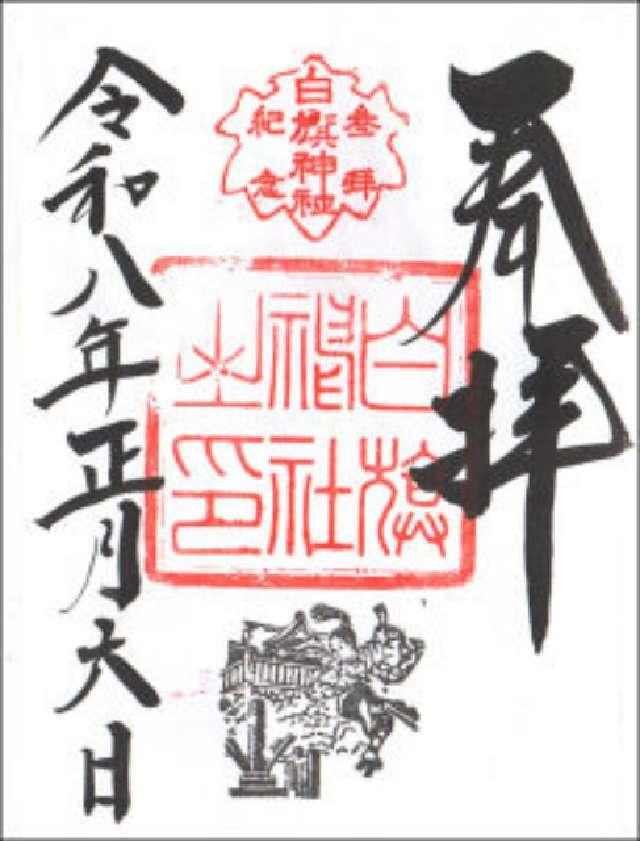 奉拝
参拜
白旗神社
紀念
白旗
神社
之印
令和八年正月六日